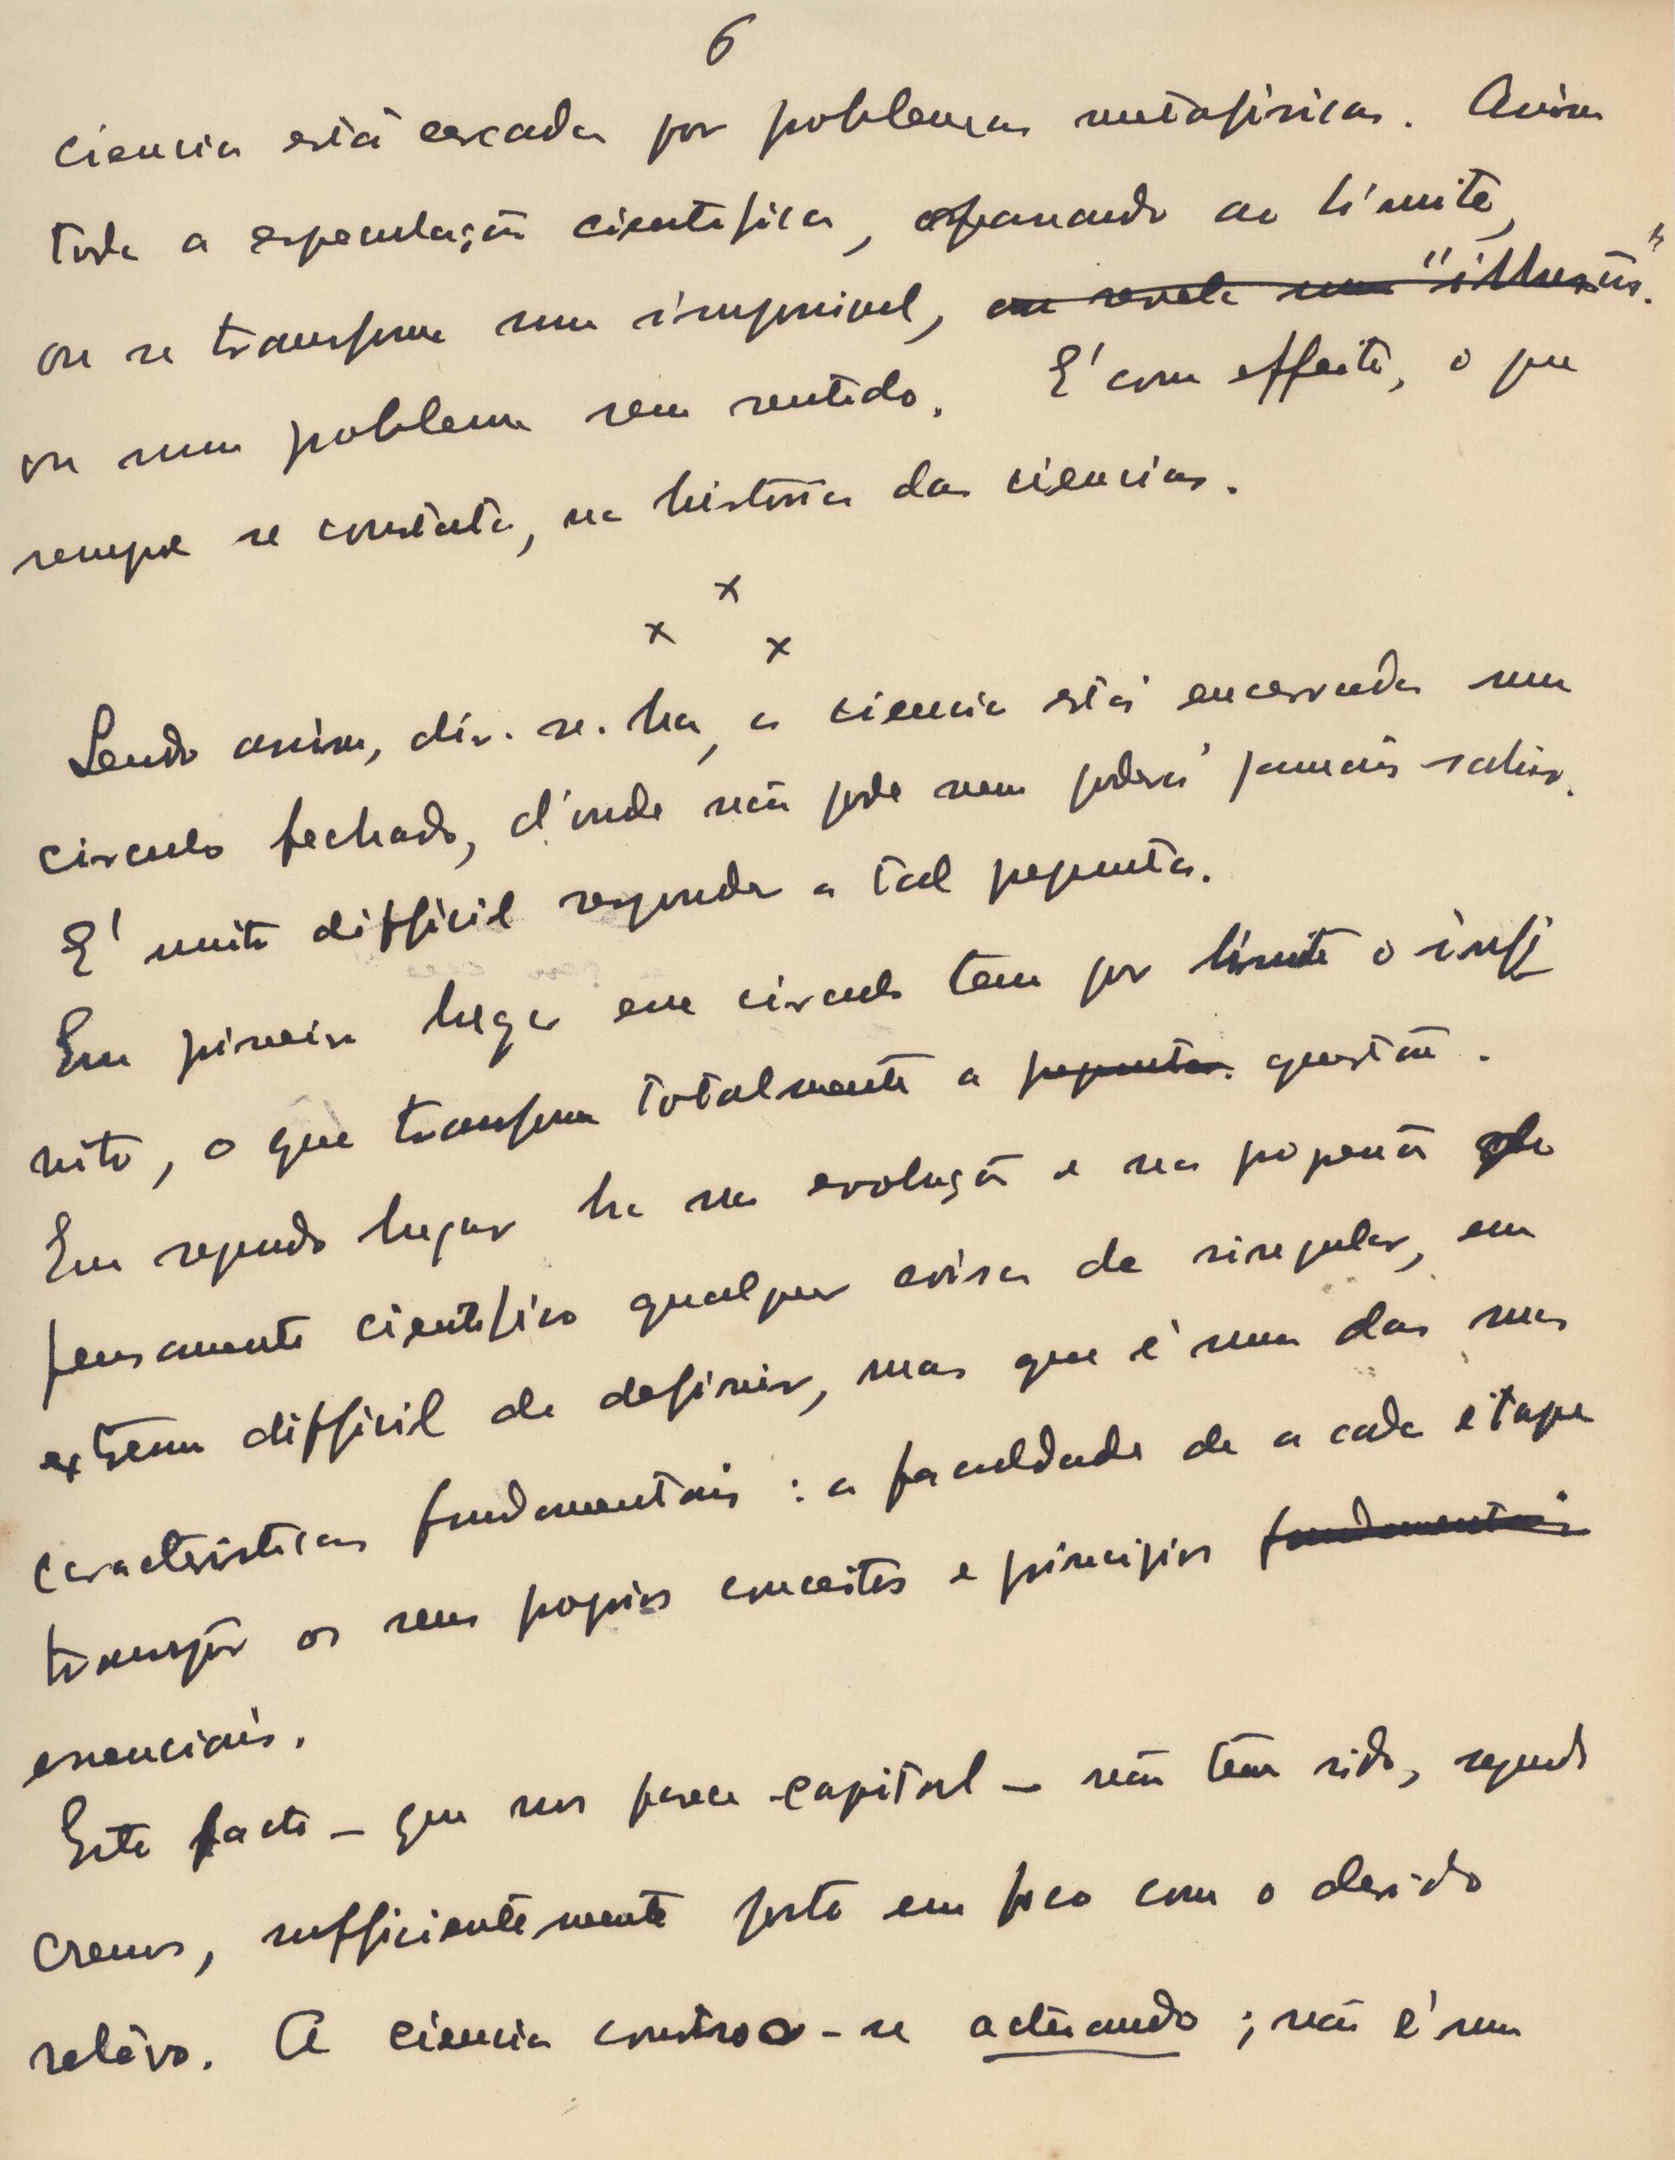 6
ciencia está cercada por problemas metafisicos. Assim
toda a especulação cientifica, passando ao limite,
ou se transforma num impossivel, ou revela uma "illusão".
ou num problema sem sentido. E' com effeito, o que
sempre se constata, na historia das ciencias.
x
x x
Sendo assim, dir-se-ha, a ciencia está encerrada num
circulo fechado, d'onde não pode nem poderá jamais sahir.
E' muito difficil responder a tal pergunta.
Em primeiro lugar esse circulo tem por limite o infi
nito, o que transforma totalmente a pergunta. questão.
Em segundo lugar ha na evolução e na progressão do
pensamento cientifico qualquer coisa de singular, em
extremo difficil de definir, mas que é uma das suas
caracteristicas fundamentais: a faculdade de a cada etapa
transpôr os seus proprios conceitos e principios fundamentais
essenciais.
Este facto - que nos parece capital - não tem sido, segundo
cremos, sufficientemente posto em foco com o devido
relêvo. A ciencia constroe-se actuando; não é um